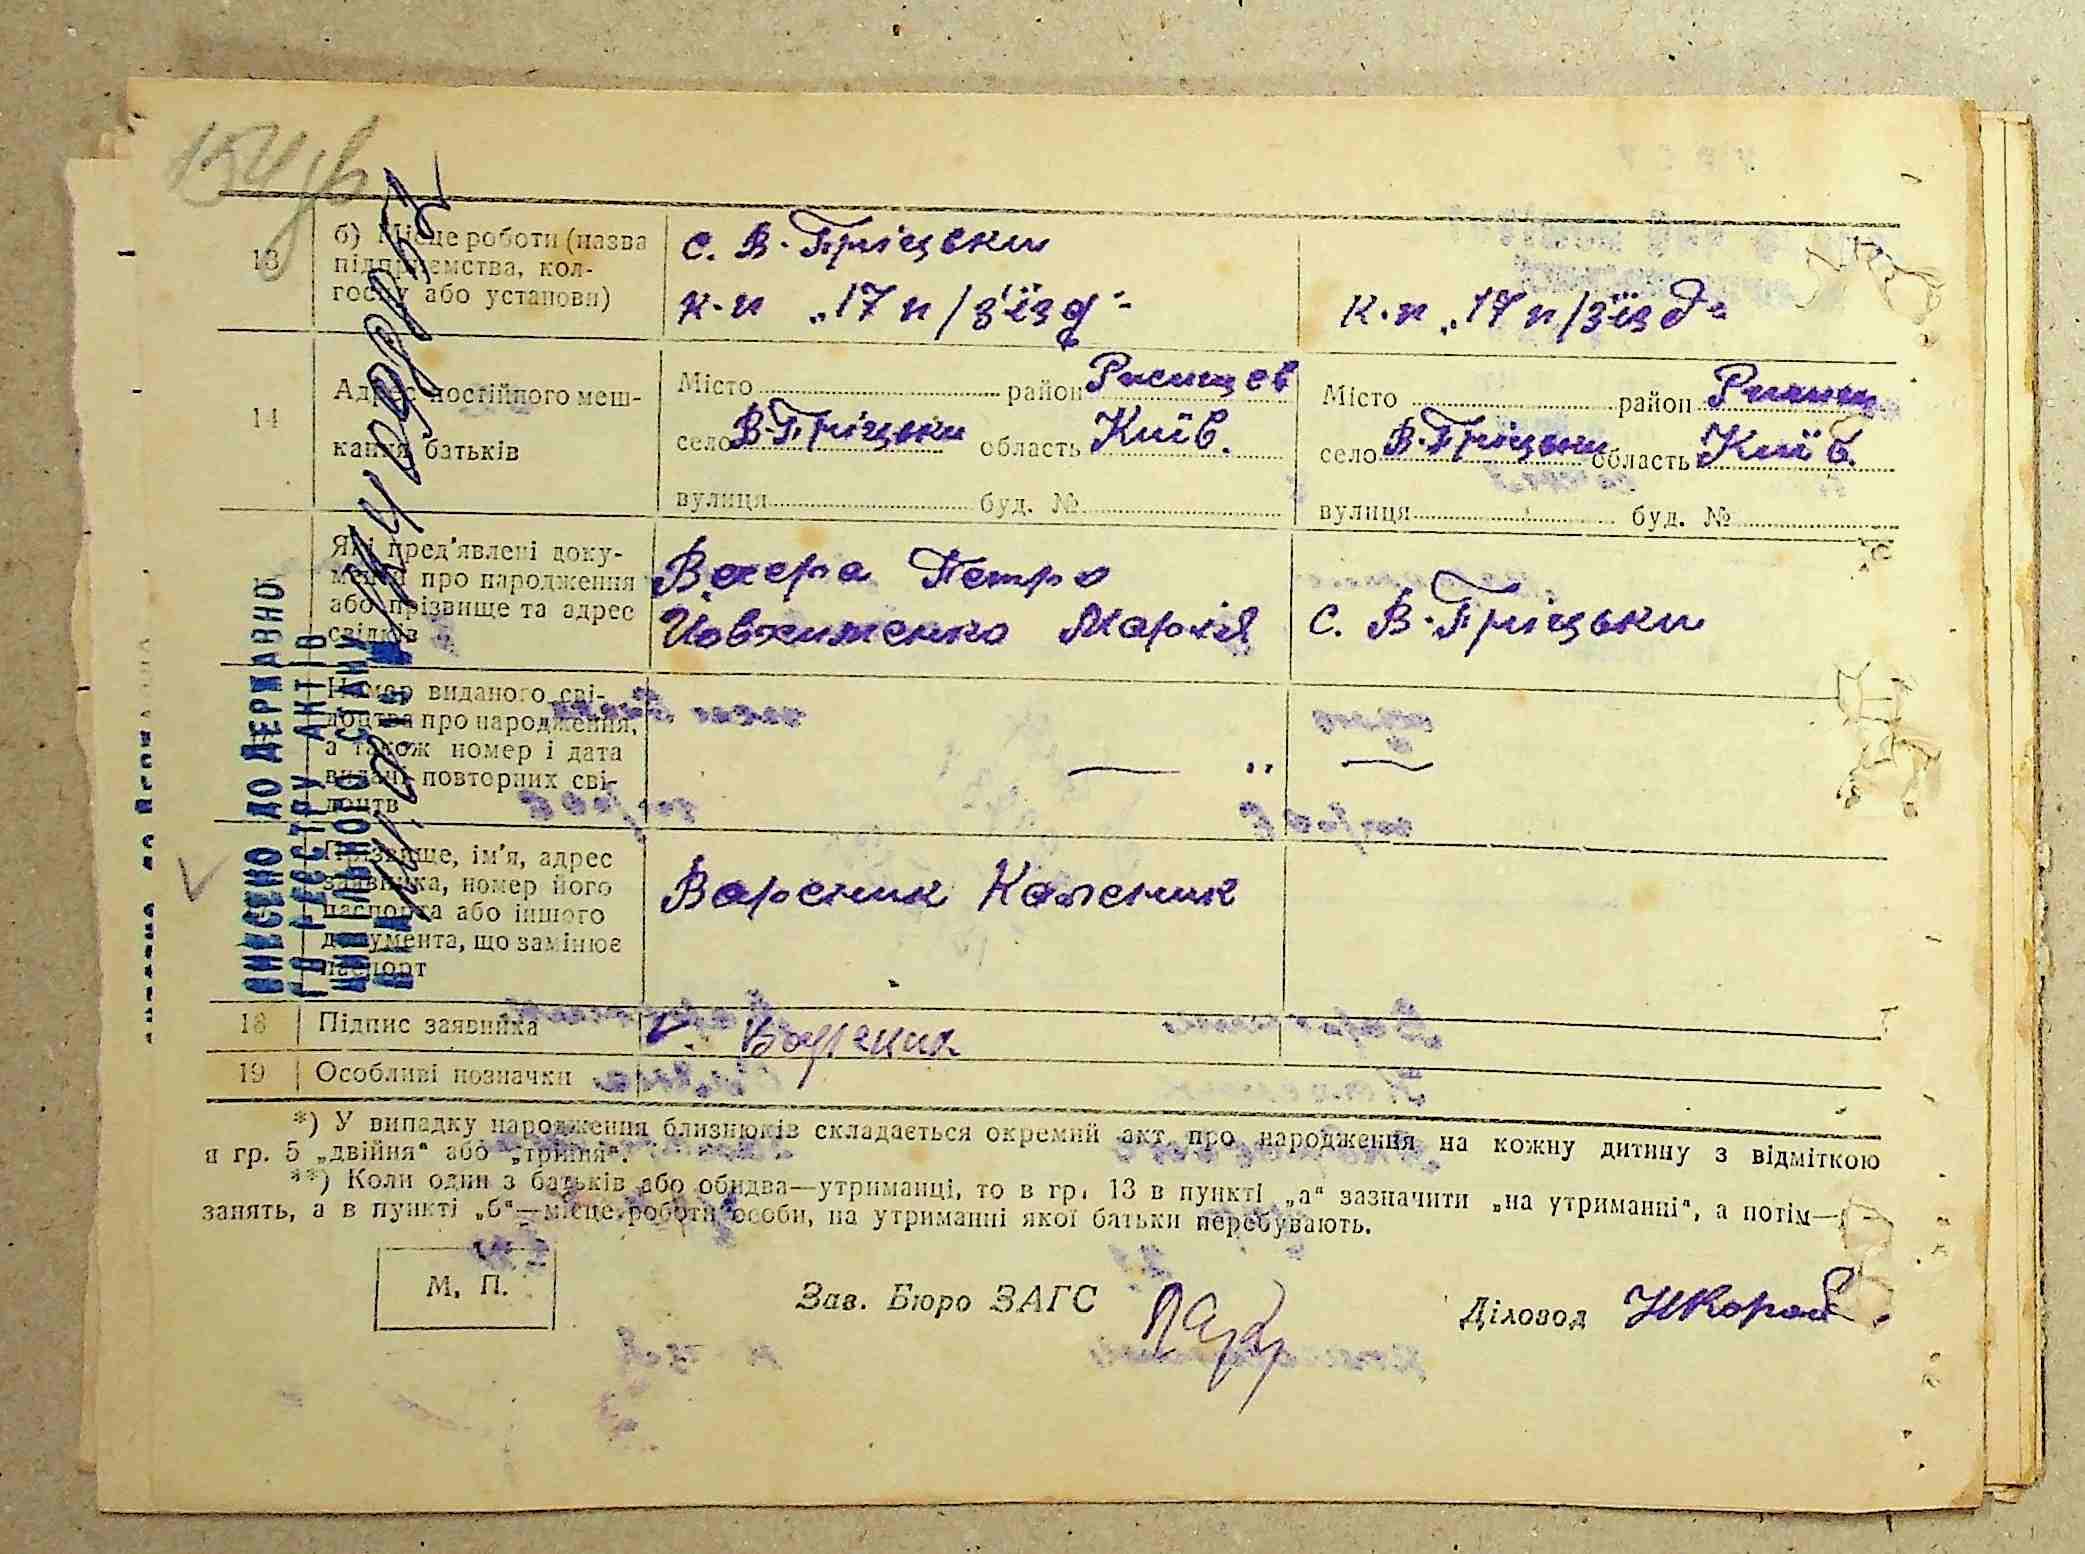 154 зв
13
б) Місце роботи (назва
підприємства, кол-
госпу або установи)
с. В-Пріцьки
к-п „17 п/з'їзд"
к-п „17 п/зїзд"
14
Адрес постійного меш-
кання батьків
Місто район Ржищев
село В-Пріцьки область Київ.
вулиця буд. №
Місто район Ржищ
село В-Пріцьки область Київ.
вулиця буд. №
Які пред'явлені доку-
менти про народження
або прізвище та адрес
свідків
Вечера Петро
Йовхименко Марія
с. В-Пріцьки
Номер виданого сві-
доцтва про народження,
а також номер і дата
видачі повторних сві-
доцтв
— „ —
Прізвище, ім'я, адрес
заявника, номер його
паспорта або іншого
документа, що замінює
паспорт
Вареник Каленик
18
Підпис заявника
Вареник
19
Особливі позначки
*) У випадку народження близнюків складається окремий акт про народження на кожну дитину з відміткою
в гр. 5 „двійня" або „трійня".
**) Коли один з батьків або обидва—утриманці, то в гр. 13 в пункті „а" зазначити „на утриманні", а потім—
занять, а в пункті „б"—місце роботи особи, на утриманні якої батьки перебувають.
М. П.
Зав. Бюро ЗАГС
Діловод
ВНЕСЕНО ДО ДЕРЖАВНО
ГО РЕЄСТРУ АКТІВ
ЦИВІЛЬНОГО СТАНУ